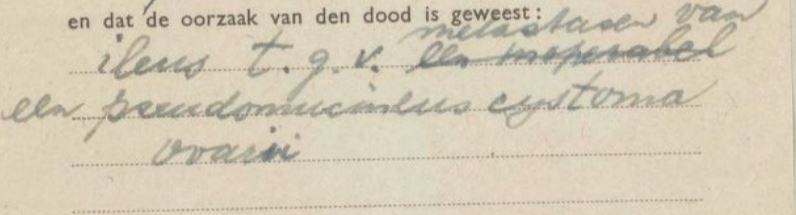 en dat de oorzaak van den dood is geweest:
metastasen van
ileus t.g.v. een inoperabel
een pseudomucineus cystoma
ovarii